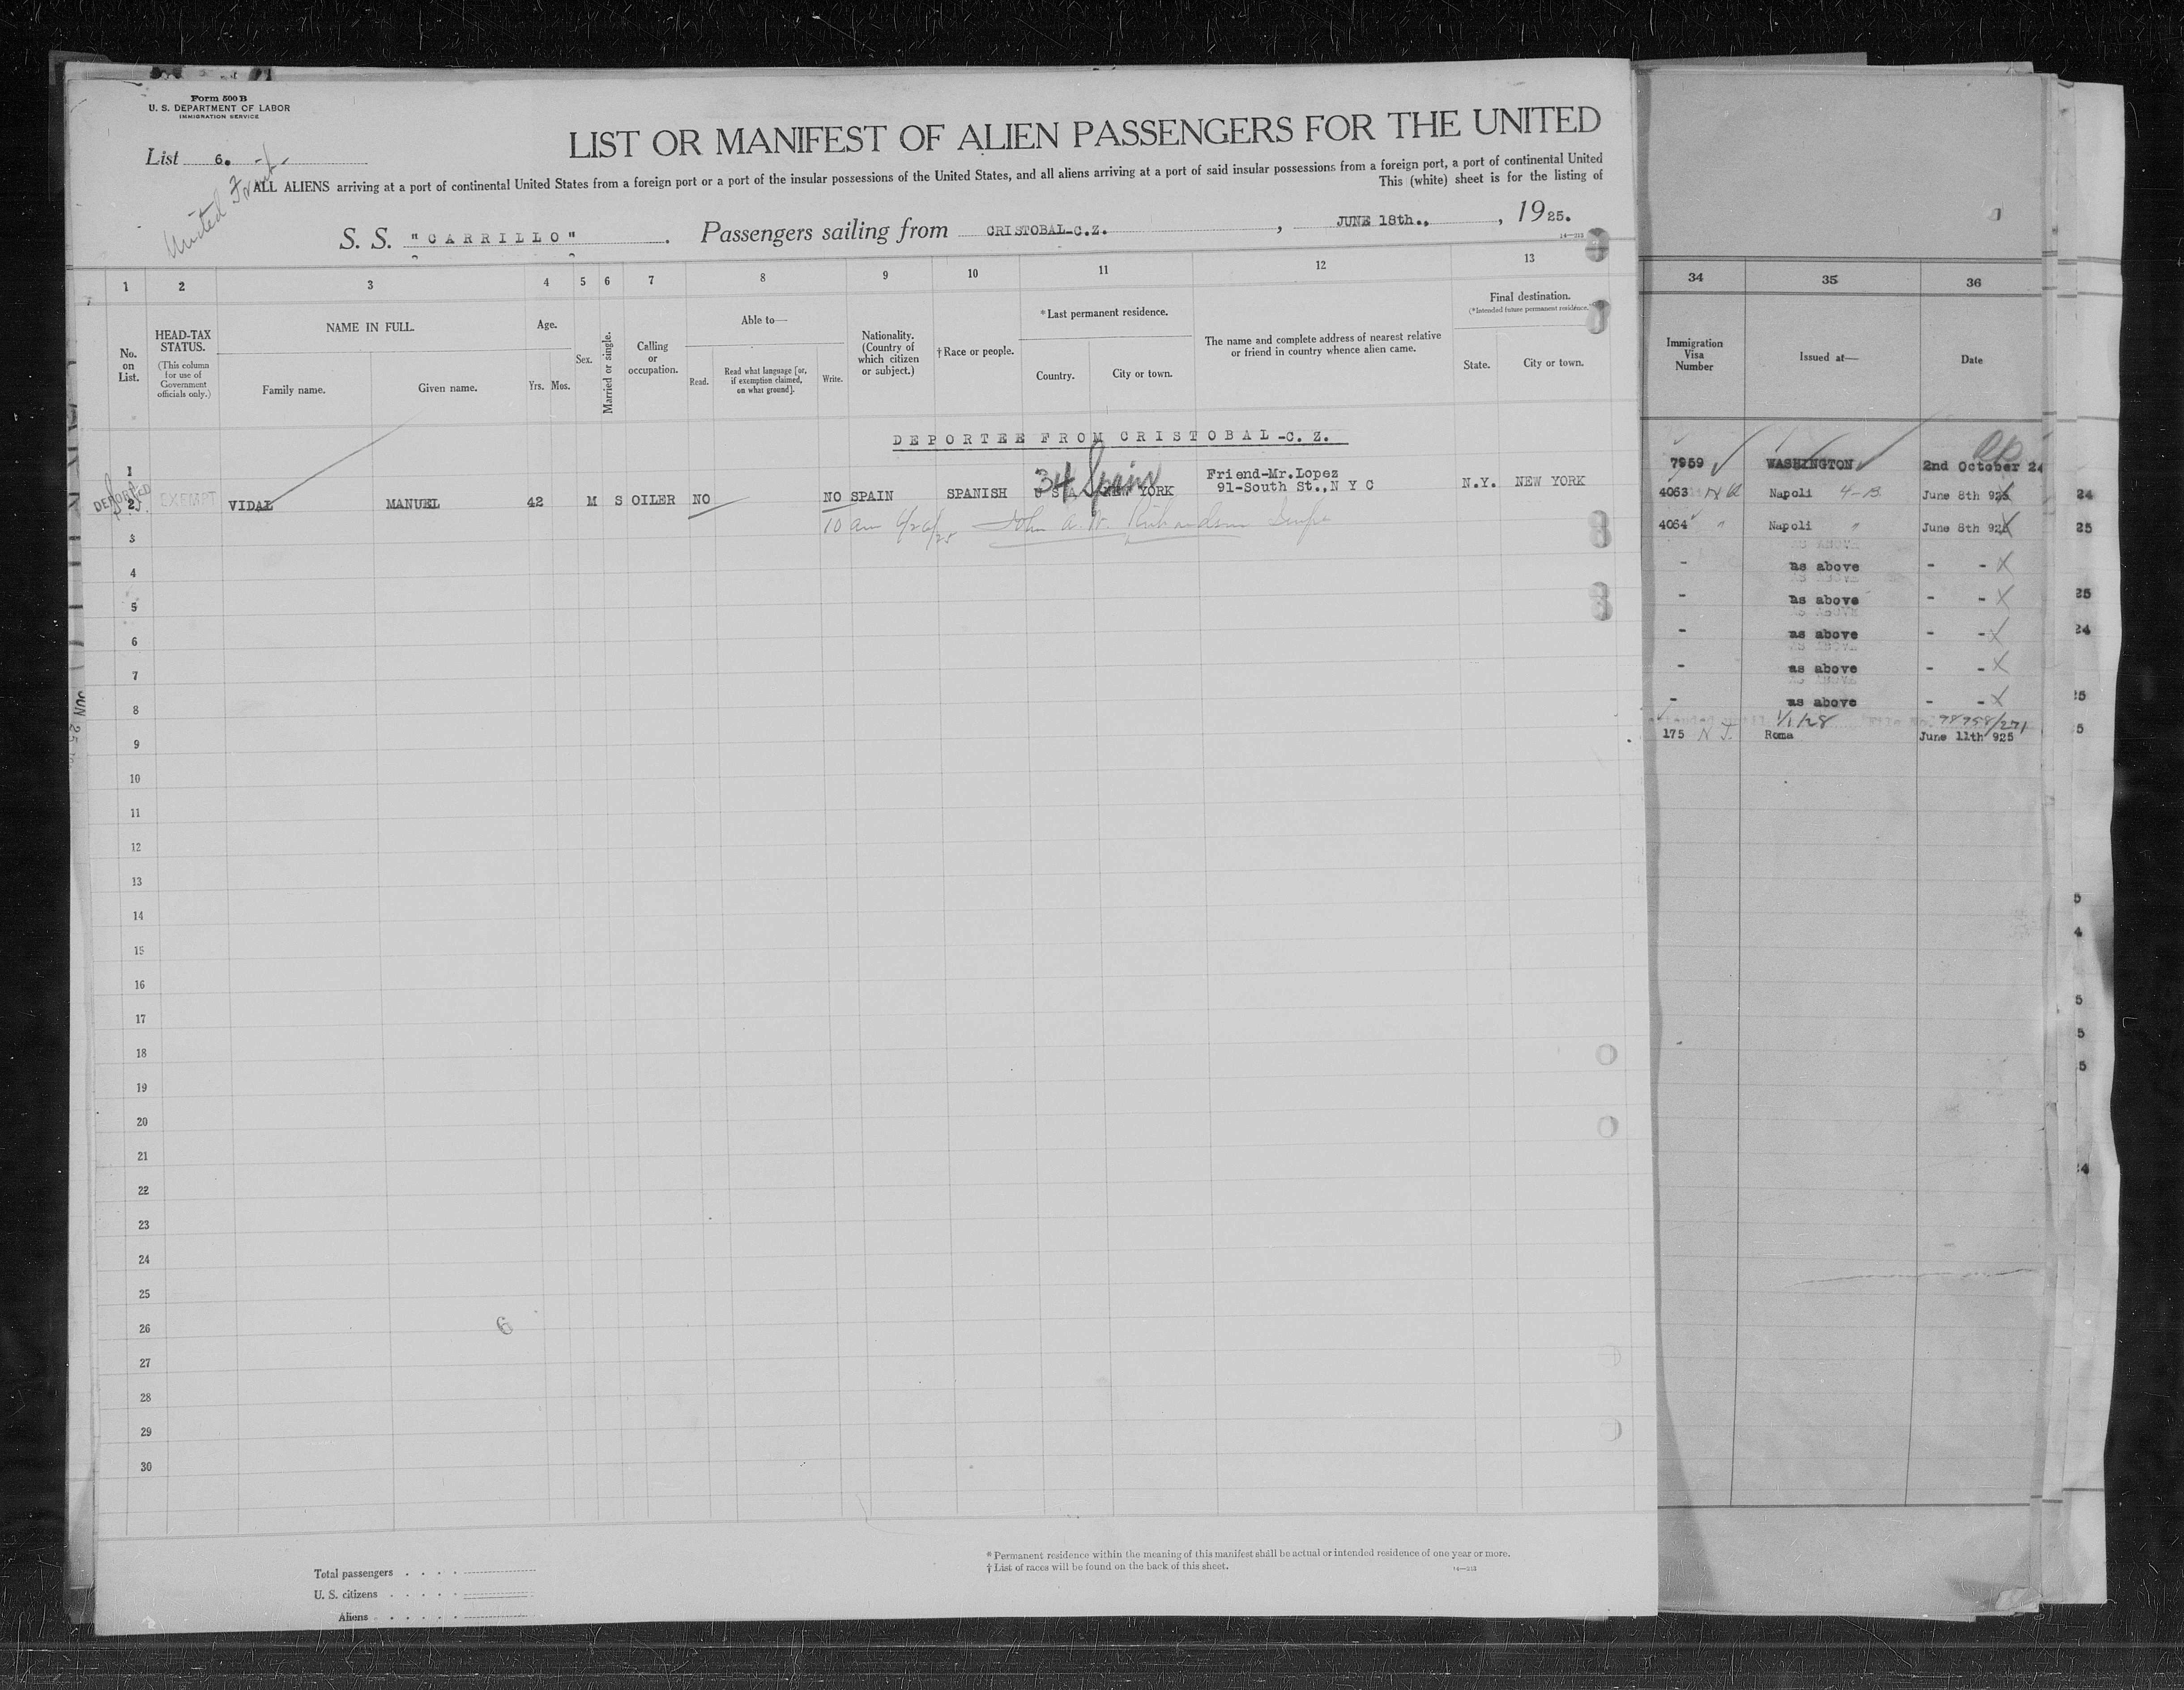 Form 500 B
U. S. DEPARTMENT OF LABOR
IMMIGRATION SERVICE
List 6.
United Fruit
LIST OR MANIFEST OF ALIEN PASSENGERS FOR THE UNITED
ALL ALIENS arriving at a port of continental United States from a foreign port or a port of the insular possessions of the United States, and all aliens arriving at a port of said insular possessions from a foreign port, a port of continental United
This (white) sheet is for the listing of
S. S. "CARRILLO" . Passengers sailing from CRISTOBAL-C.Z. , JUNE 18th., , 1925.
14—213
1 2 3 4 5 6 7 8 9 10 11 12 13
No. on List.
HEAD-TAX STATUS.
(This column for use of Government officials only.)
NAME IN FULL.
Family name. Given name.
Age.
Yrs. Mos.
Sex.
Married or single.
Calling or occupation.
Able to—
Read. Read what language [or, if exemption claimed, on what ground]. Write.
Nationality. (Country of which citizen or subject.)
† Race or people.
*Last permanent residence.
Country. City or town.
The name and complete address of nearest relative or friend in country whence alien came.
Final destination.
(*Intended future permanent residence.)
State. City or town.
DEPORTEE FROM CRISTOBAL-C. Z.
1
DEPORTED
2 EXEMPT VIDAL MANUEL 42 M S OILER NO NO SPAIN SPANISH U S A NEW YORK Friend-Mr.Lopez 91-South St.,N Y C N.Y. NEW YORK
34 Spain
10 am 6/26/25 John A. W. Richardson
3
4
5
6
7
8
9
10
11
12
13
14
15
16
17
18
19
20
21
22
23
24
25
26
27
28
29
30
6
JUN 25
Total passengers
U. S. citizens
Aliens
* Permanent residence within the meaning of this manifest shall be actual or intended residence of one year or more.
† List of races will be found on the back of this sheet.
14—213
34 35 36
Immigration Visa Number
Issued at—
Date
7959 WASHINGTON 2nd October 24
4063 Napoli 4-B June 8th 925
4064 " Napoli " June 8th 925
- as above - -
- as above - -
- as above - -
- as above - -
- as above - -
1/1/28 98798/271
175 N J. Roma June 11th 925
24
25
25
24
25
5
5
4
5
5
5
24